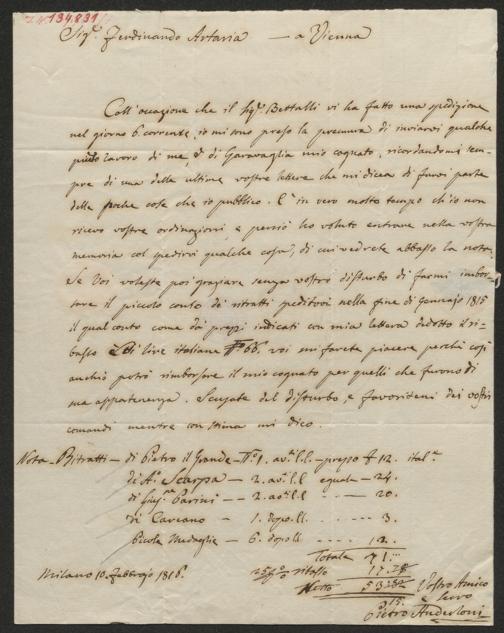 134.831
Sigr. Ferdinando Artaria — a Vienna
Coll'occazione che il Sigr. Bettalli vi ha fatto una spedizione
nel giorno 6 corrente, io mi sono preso la premura di inviarvi qualche
lavoro di me, e di Garavaglia mio cognato, ricordandomi sem-
pre di una delle ultime vostre lettere che mi dicea di farvi parte
delle poche cose che io pubblico. E in vero molto tempo ch'io non
ricevo vostre ordinazioni, e perciò ho voluto entrare nella vostra
memoria col spedirvi qualche cosa, di cui vedrete abbasso la nota.
Se Voi voleste poi graziare senza vostro disturbo di farmi imbor-
sare il piccolo conto di ritratti speditovi nella fine di Gennajo 1815
il qual conto come da prezzi indicati con mia lettera dedotto il ri-
basso di lire italiane 66, voi mi farete piacere perchè così
anch'io potrò rimborsare il mio cognato per quelli che furono di
sua appartenenza. Scusate del disturbo e favoritemi dei vostri
comandi mentre con stima mi dico.
Nota - Ritratti - di Pietro il Grande - No. 1. av. l.l. - prezzo 12. ital.e
di A. Scarpa - 2. av. l.l equale - 24.
di Gius. Parini - - 2. av. l.l - 20.
di Caviano - 1. dopo ll. - 3.
Picole Medaglie - 6. dopo ll - 12.
Totale 71.
Milano 10. Febbrajo 1816. 25 % ribasso 17.
Netto 53. Vostro Amico
e servo
Pietro Anderloni